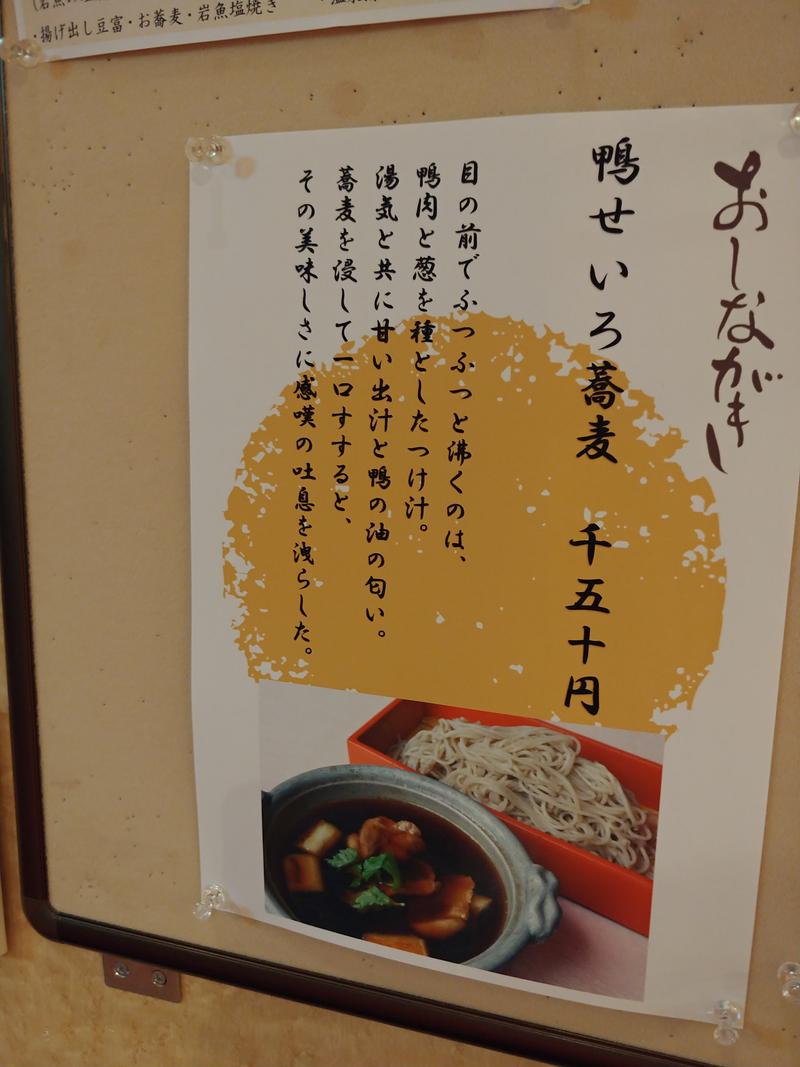 ・揚げ出し豆富・お蕎麦・岩魚塩焼き
おしながき
鴨せいろ蕎麦　千五十円
目の前でふつふつと沸くのは、
鴨肉と葱を種としたつけ汁。
湯気と共に甘い出汁と鴨の油の匂い。
蕎麦を浸して一口すすると、
その美味しさに感嘆の吐息を洩らした。